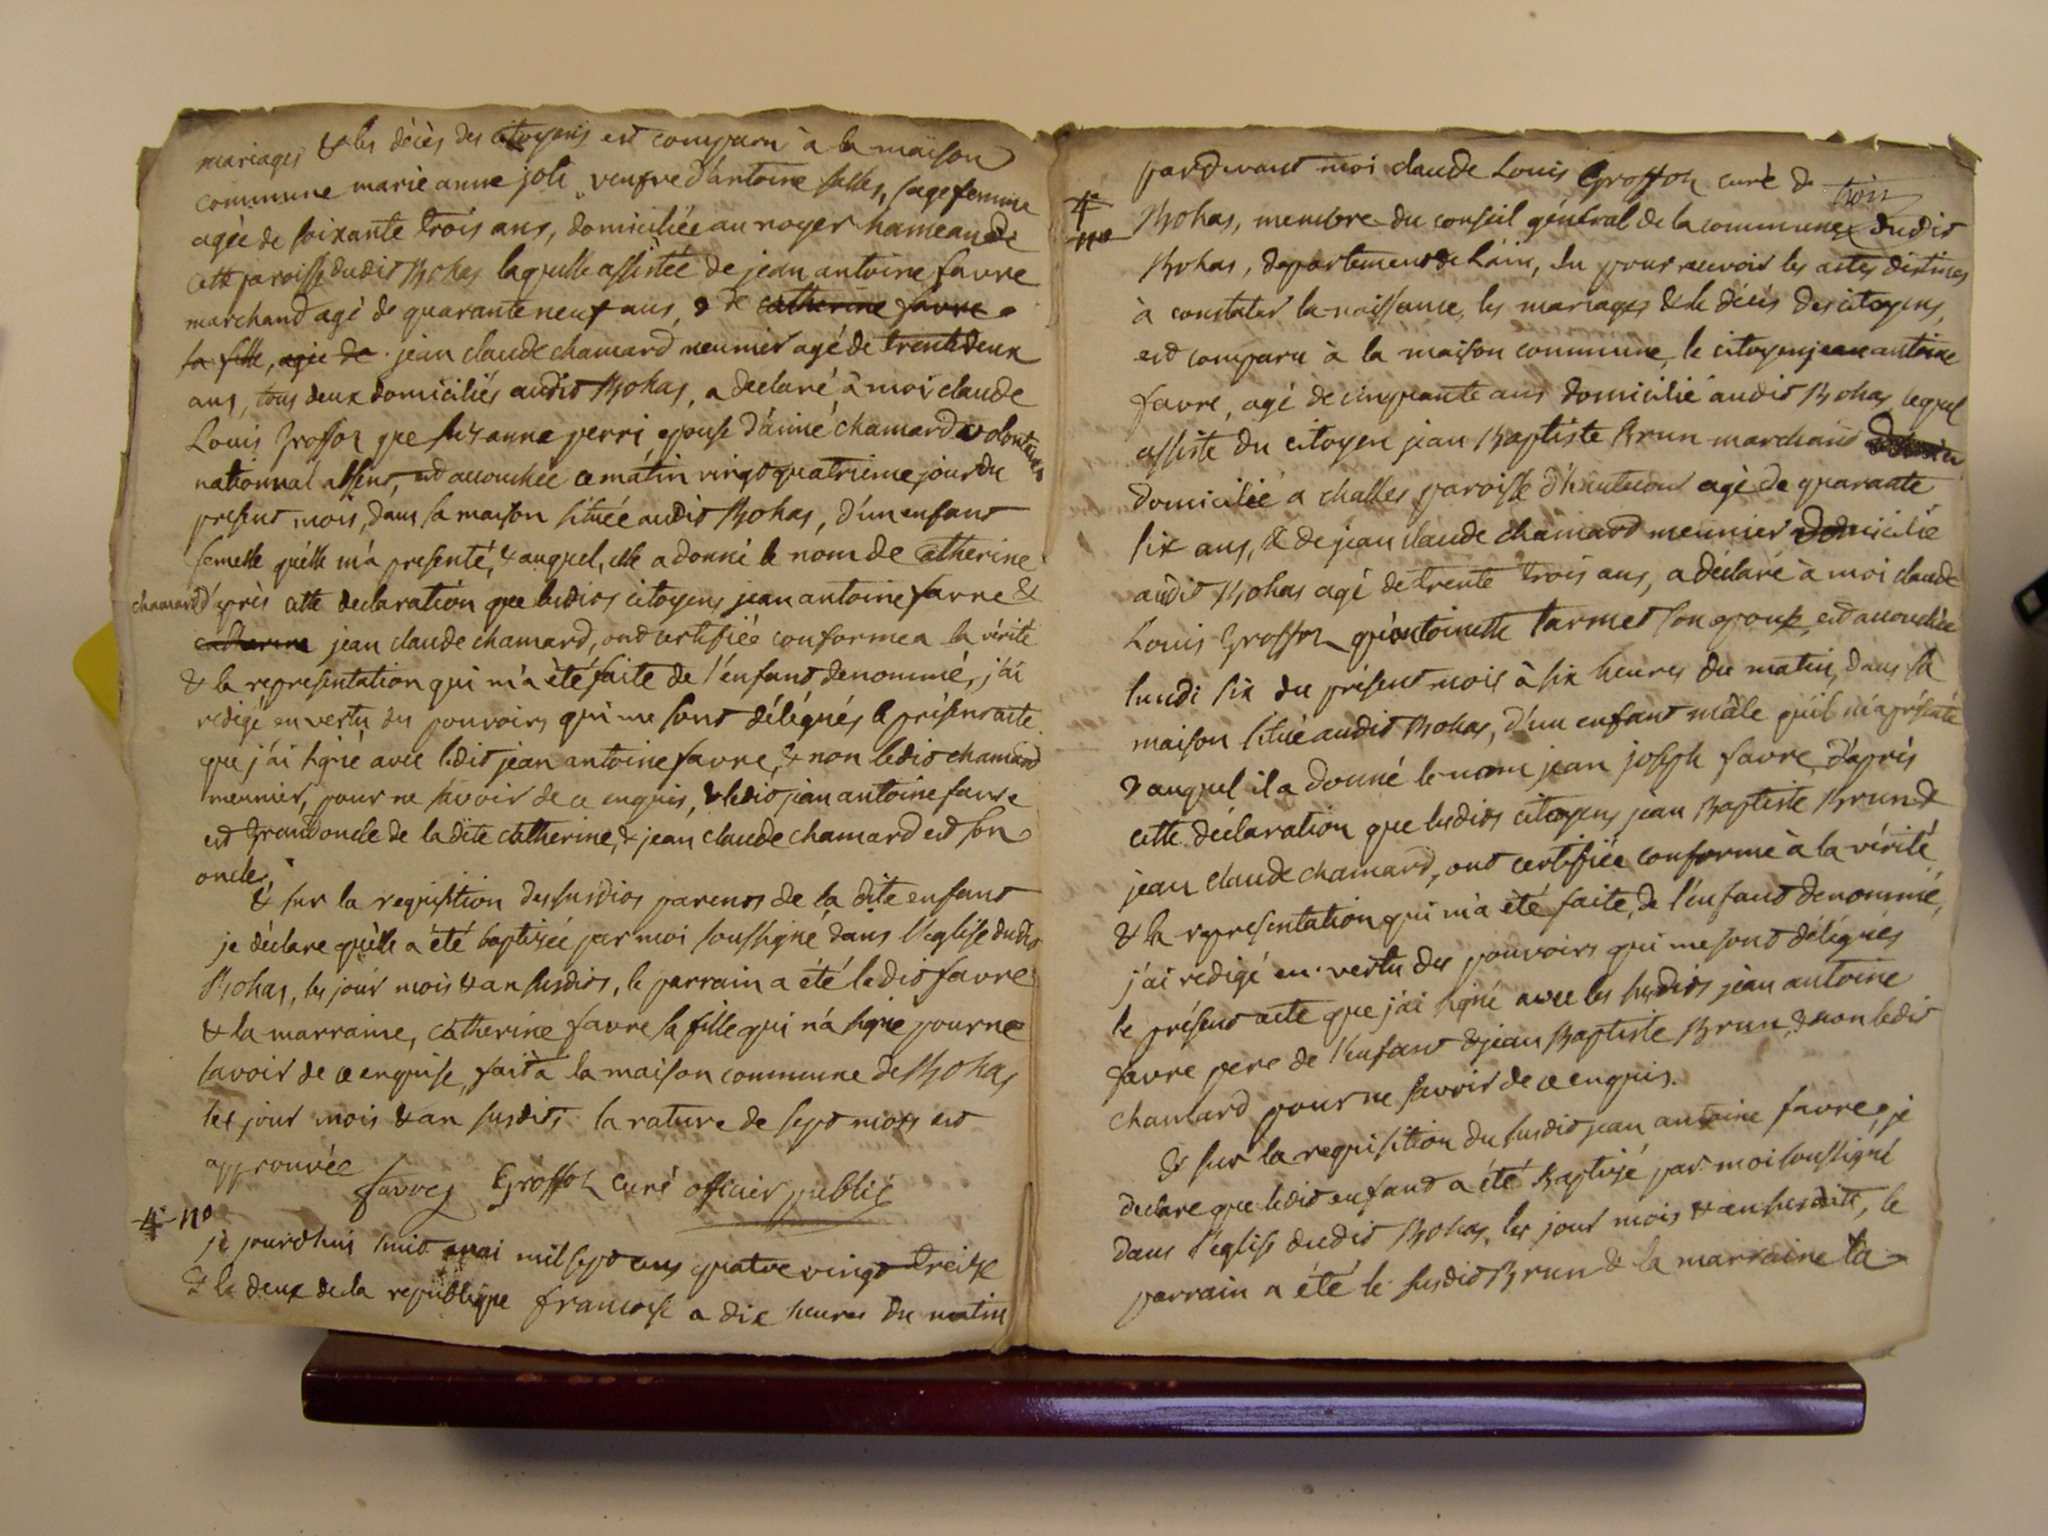 mariages & les décès des citoyens est comparu à la maison
commune marie anne joli veufve d'antoine salles, sage femme
agée de soixante trois ans, domiciliée au noyer hameau de
cette paroisse dudit Bohas laquelle assistée de jean antoine favre
marchand agé de quarante neuf ans, & de catherine favre
sa fille, agée de jean claude chamard meunier agé de trente deux
ans, tous deux domiciliés audit Bohas, a declaré à moi claude
Louis Grosson que suzanne perri epouse d'aimé chamard volontaire
nationnal absent, est accouchée ce matin vingt quatrieme jour du
present mois, dans sa maison située audit Bohas, d'un enfant
femelle qu'elle m'a presenté, & auquel elle a donné le nom de catherine
chamard d'après cette declaration que lesdits citoyens jean antoine favre &
catherine jean claude chamard, ont certifiée conforme a la vérité
& la representation qui m'a été faite de l'enfant denommé, j'ai
redigé en vertu des pouvoirs qui me sont délégués le présent acte
que j'ai signé avec ledit jean antoine favre, & non ledit chamard
meunier, pour ne savoir de ce enquis, & ledit jean antoine favre
est grand oncle de la dite catherine, & jean claude chamard est son
oncle,
& sur la requisition des susdits parents de la dite enfant
je déclare qu'elle a été baptisée par moi soussigné dans l'église dudit
Bohas, les jour mois & an susdits, le parrain a été ledit favre
& la marraine, catherine favre sa fille qui n'a signé pour ne
savoir de ce enquise, fait à la maison commune de Bohas
les jour mois & an susdits la rature de sept mots est
approuvée
favre Grosson curé officier public
4 no
je jourdhui huit mai mil sept cens quatre vingt treize
& la deux de la republique francoise a dix heures du matin
pardevant moi claude Louis Grosson curé de
trois
4
no
Bohas, membre du conseil général de la commune dudit
Bohas, departement de l'ain, elu pour recevoir les actes destinés
à constater la naissance, les mariages & le décès des citoyens,
est comparu à la maison commune, le citoyen jean antoine
favre, agé de cinquante ans domicilié audit Bohas lequel
assisté du citoyen jean Baptiste Brun marchand
domicilié a challes paroisse d'hautecour agé de quarante
six ans, & de jean claude chamard meunier domicilié
audit Bohas agé de trente trois ans, a déclaré à moi claude
Louis Grosson qu'antoinette tarmet son epouse, est accouchée
lundi six du présent mois à six heures du matin, dans sa
maison située audit Bohas, d'un enfant mâle qu'il m'a présenté
& auquel il a donné le nom jean joseph favre, d'après
cette déclaration que lesdits citoyens jean Baptiste Brun &
jean claude chamard, ont certifiée conforme à la vérité
& la representation qui m'a été faite, de l'enfant denommé,
j'ai redigé en vertu des pouvoirs qui me sont délégués
le présent acte que j'ai signé avec les susdits jean antoine
favre pere de l'enfant & jean Baptiste Brun, & non ledit
chamard pour ne savoir de ce enquis.
& sur la requisition du susdit jean antoine favre, je
declare que ledit enfant a été Baptisé par moi soussigné
dans l'eglise dudit Bohas, les jour mois & an susdits, le
parrain a été le susdit Brun & la marraine la